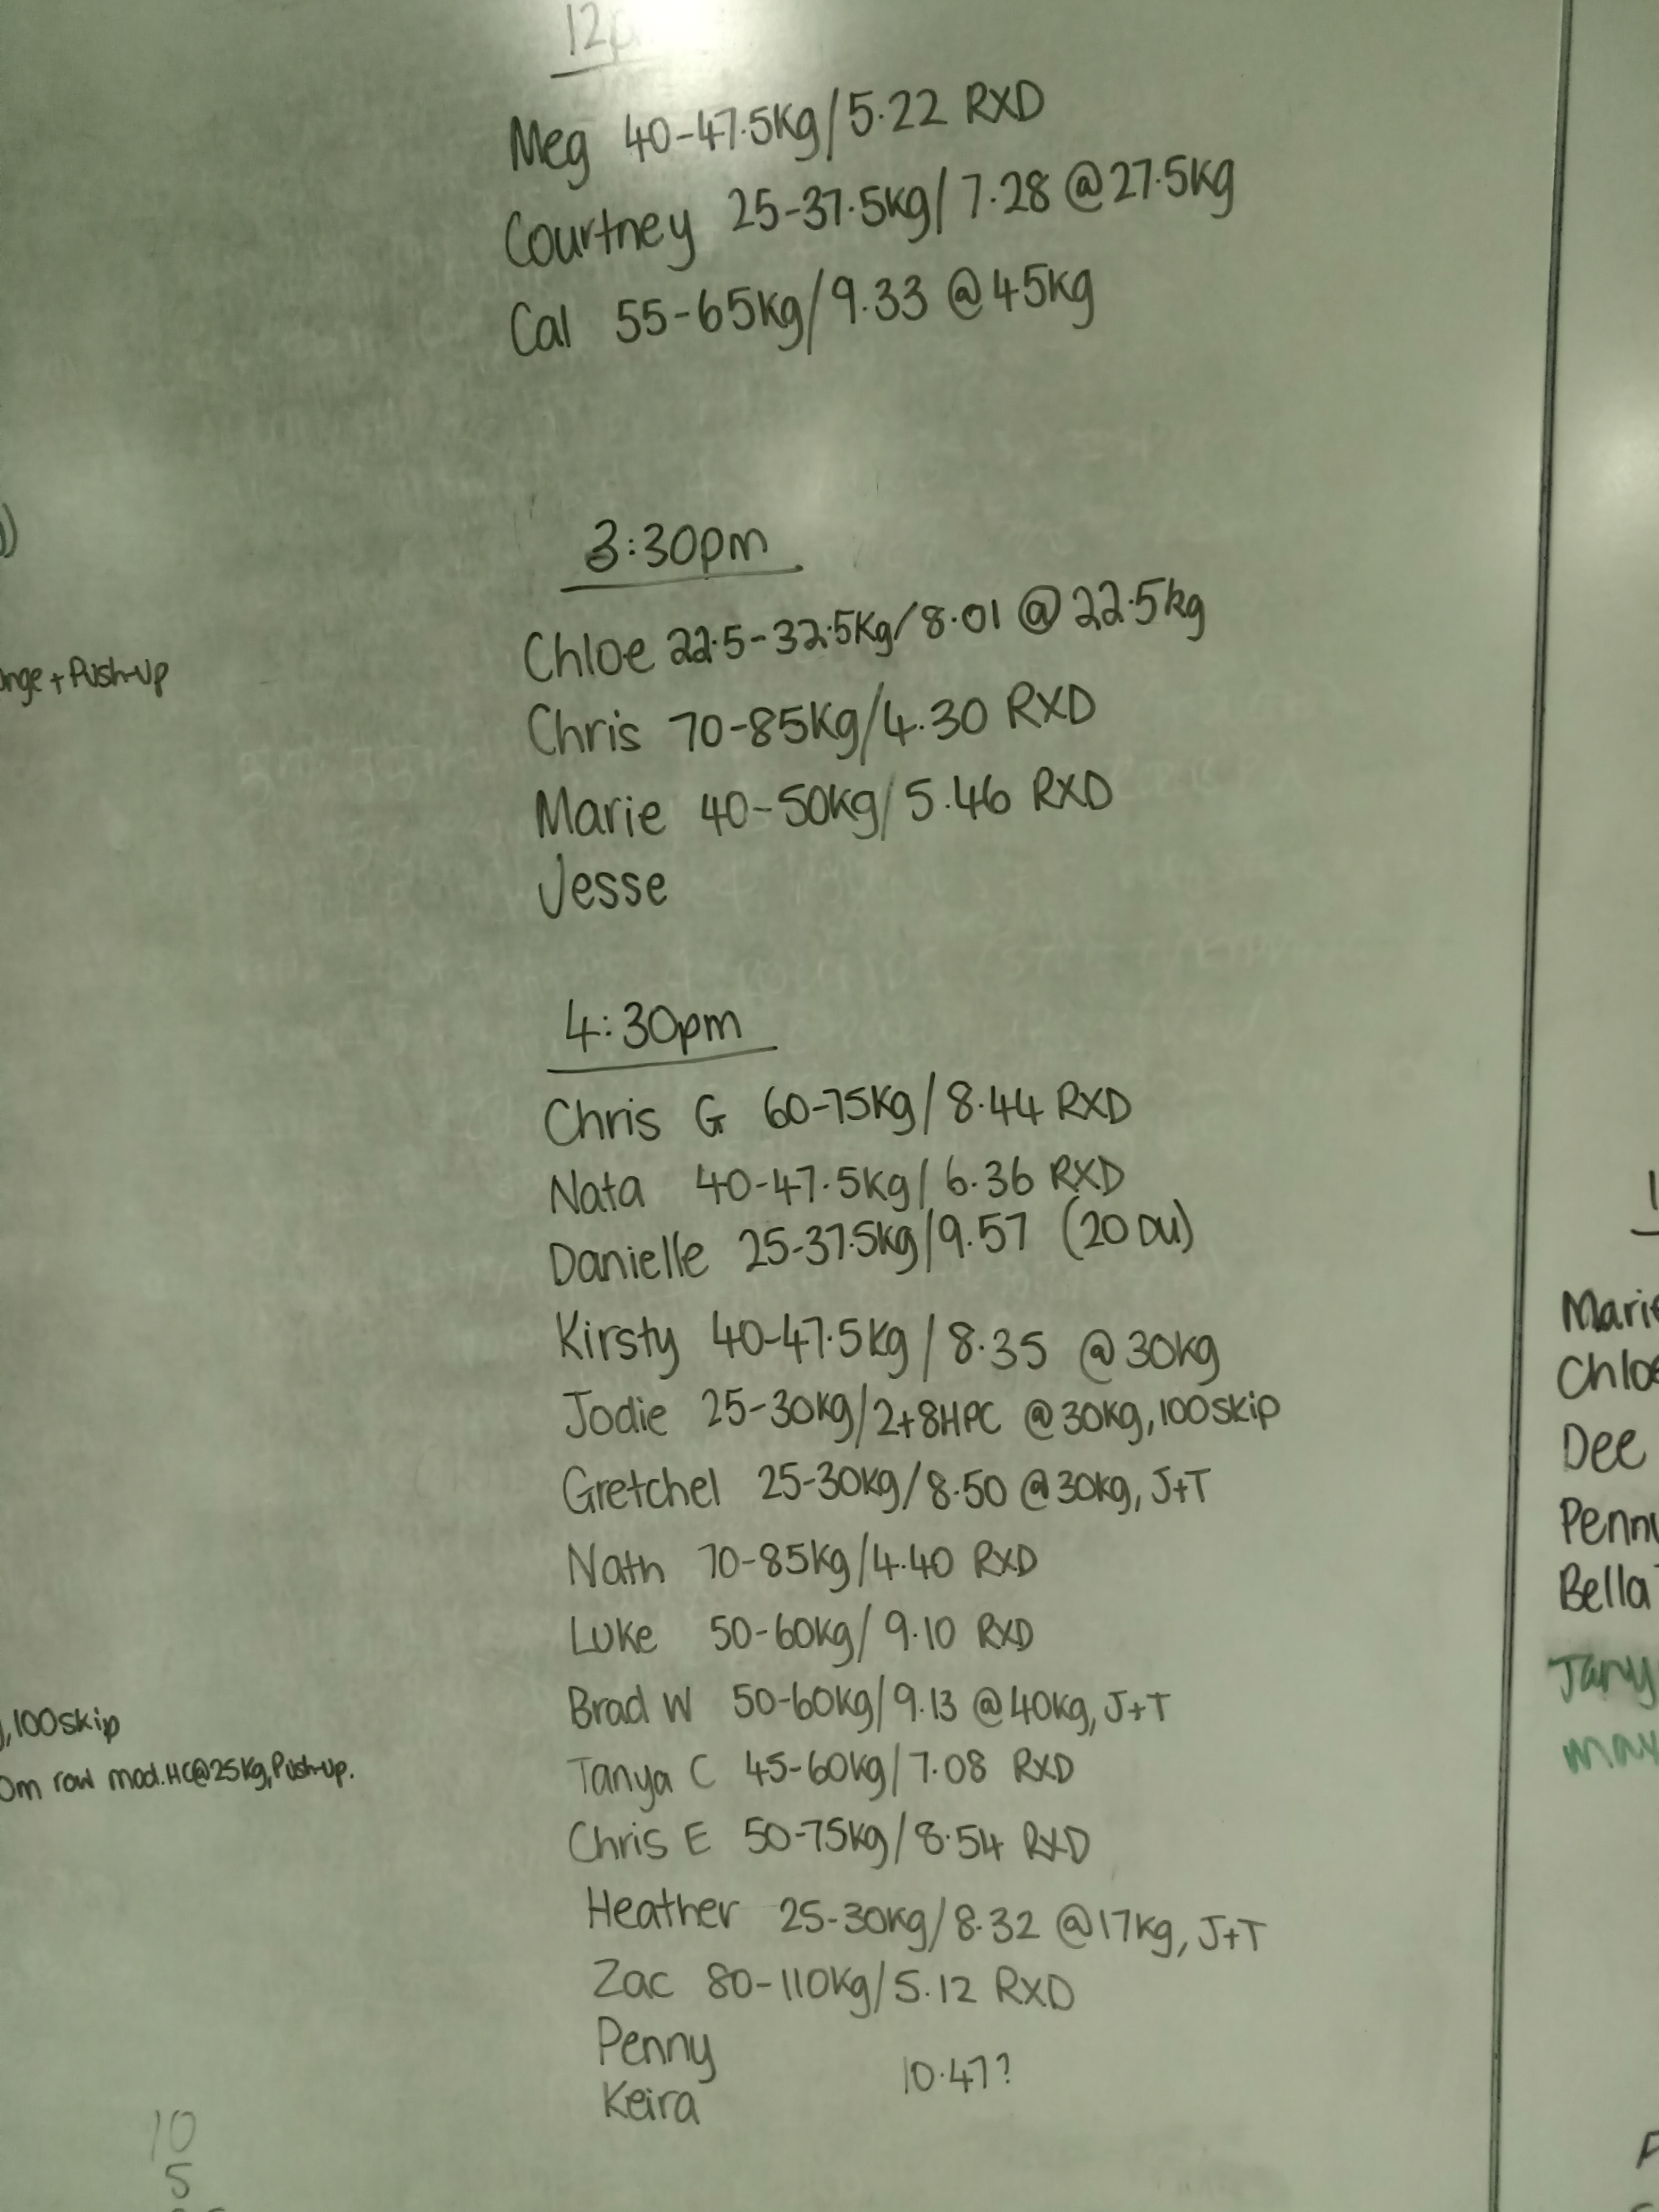 12p
Meg 40-47.5Kg/5.22 RXD
Courtney 25-37.5kg/7.28 @27.5kg
Cal 55-65kg/9.33 @45kg
3:30pm
Chloe 22.5-32.5Kg/8.01 @22.5kg
Chris 70-85Kg/4.30 RXD
Marie 40-50kg/5.46 RXD
Jesse
4:30pm
Chris G 60-75Kg/8.44 RXD
Nata 40-47.5Kg/6.36 RXD
Danielle 25-37.5kg/9.57 (20 DU)
Kirsty 40-47.5kg/8.35 @30kg
Jodie 25-30kg/2+8HPC @30Kg,100skip
Gretchel 25-30kg/8.50 @30kg, J+T
Nath 70-85kg/4.40 RXD
Luke 50-60kg/9.10 RXD
Brad W 50-60kg/9.13 @40kg, J+T
Tanya C 45-60kg/7.08 RXD
Chris E 50-75kg/8.54 RXD
Heather 25-30kg/8.32 @17kg, J+T
Zac 80-110Kg/5.12 RXD
Penny
10.47?
Keira
nge + Push-up
,100skip
0m row mod.HC@25Kg,Push-up.
10
5
Marie
Chloe
Dee
Penny
Bella